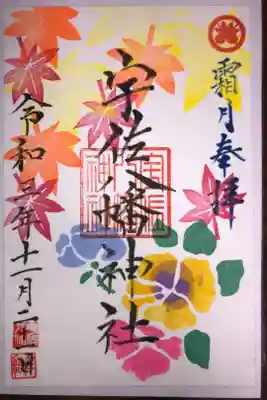 霜月奉拝
宇佐八幡神社
令和三年十一月二